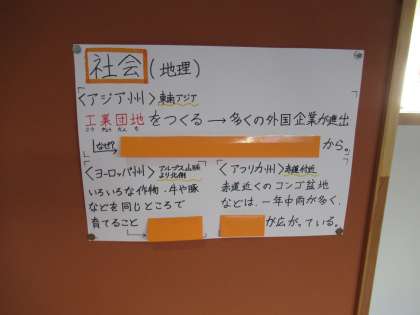 社会(地理)
〈アジア州〉東南アジア
工業団地をつくる→多くの外国企業が進出
こうぎょうだんち
なぜ? から。
〈ヨーロッパ州〉アルプス山脈より北側
いろいろな作物・牛や豚
などを同じところで
育てること→
〈アフリカ州〉赤道付近
赤道近くのコンゴ盆地
などは、一年中雨が多く、
が広がっている。